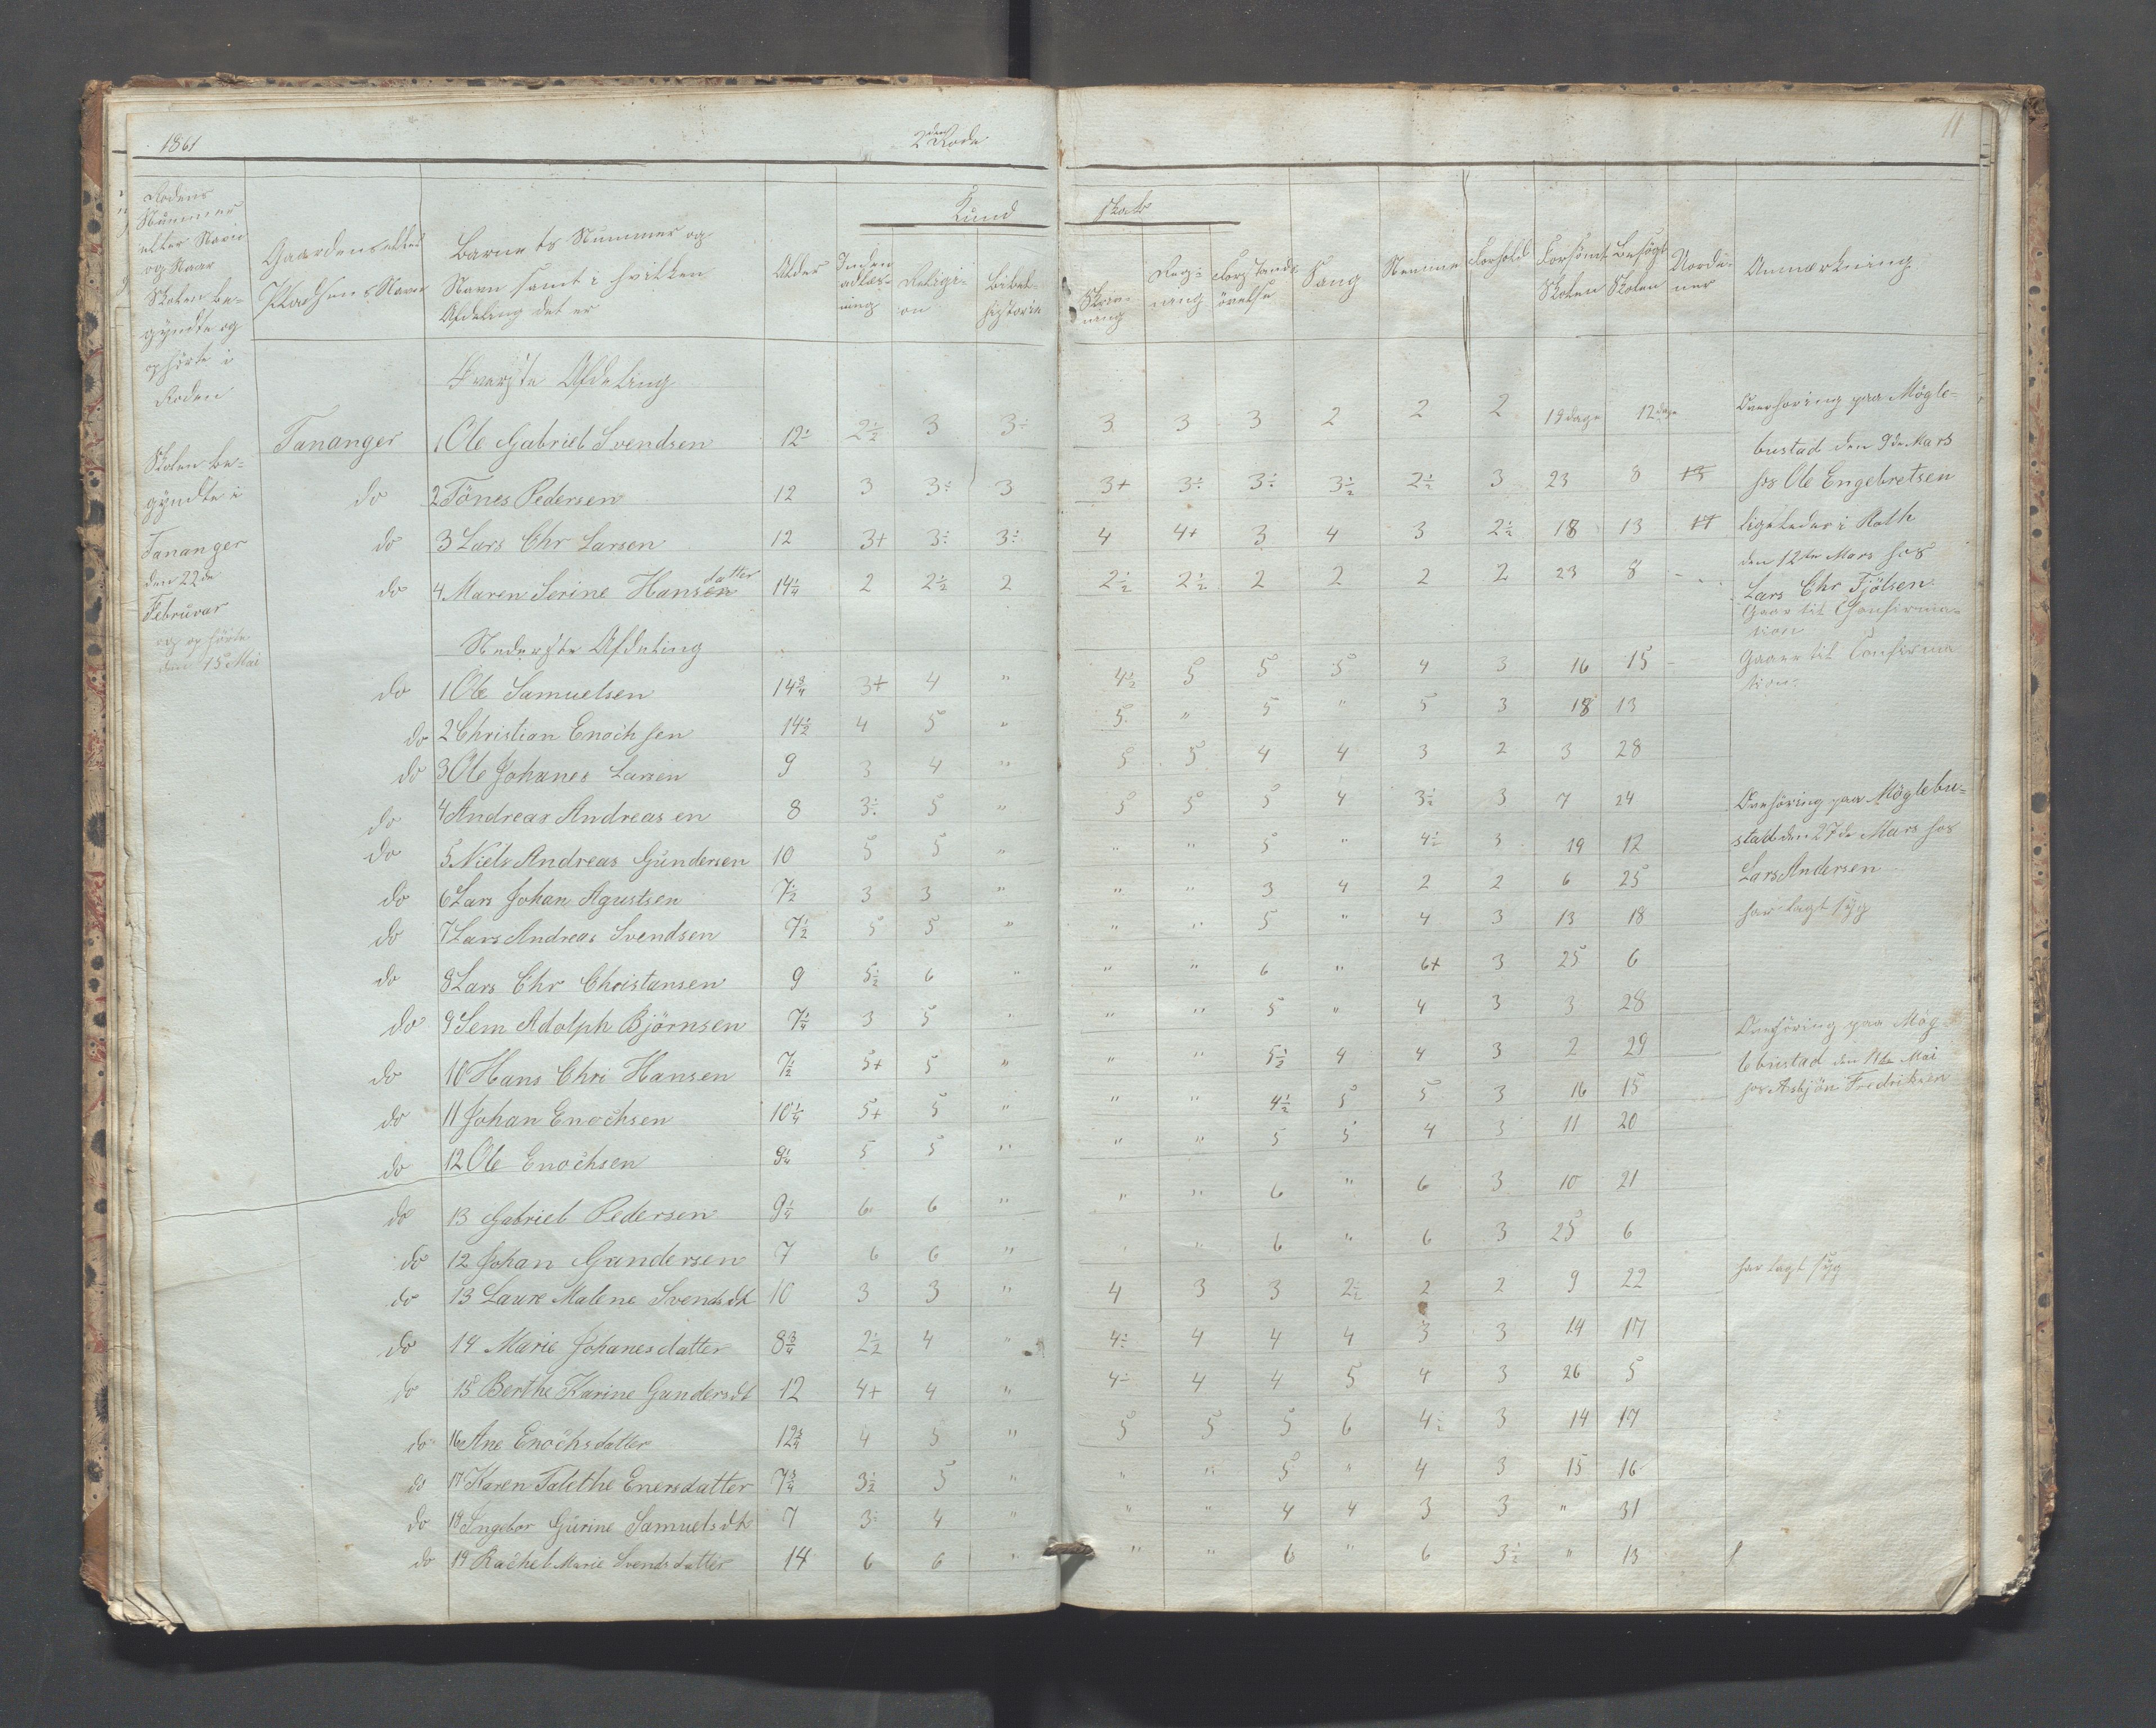 1861 2den Rode 11
Rodens
Nummer
eller Navn
og Naar
Skolen be-
gyndte og
ophørte i
Roden
Gaardens eller
Pladsens Navn
Barnets Nummer og
Navn samt i hvilken
Afdeling det er
Alder
Kundskab
Inden
adlæs-
ning
Religi-
on
Bibel-
historie
Skriv-
ning
Reg-
ning
Forstands
øvelse
Sang
Nemme
Forhold
Forsömt
Skolen
Besögt
Skolen
Anmærkning
Øverste Afdeling
Skolen be-
gyndte i
Tananger
den 22de
Februar
og ophörte
den 15 Mai
Tananger 1 Ole Gabriel Svendsen 12÷ 2½ 3 3÷ 3 3 3 2 2 2 19 dage 12 dage
do 2 Tönes Pedersen 12 3 3÷ 3 3+ 3÷ 3÷ 3½ 2½ 3 23 8 13
do 3 Lars Chr Larsen 12 3+ 3÷ 3÷ 4 4+ 3 4 3 2½ 18 13 17
do 4 Maren Serine Hansen datter 14¼ 2 2½ 2 2½ 2½ 2 2 2 2 23 8 -
Nederste Afdeling
do 1 Ole Samuelsen 14¾ 3+ 4 " 4½ 5 5 5 4 3 16 15
do 2 Christian Enochsen 14½ 4 5 " 5 " 5 " 5 3 18 13
do 3 Ole Johanes Larsen 9 3 4 " 5 5 4 4 3 2 3 28
do 4 Andreas Andreasen 8 3÷ 5 " 5 5 5 4 3½ 3 7 24
do 5 Niels Andreas Gundersen 10 5 5 " " " 5 " 4½ 3 19 12
do 6 Lars Johan Agustsen 7½ 3 3 " " " 3 4 2 2 6 25
do 7 Lars Andreas Svendsen 7½ 5 5 " " " 5 " 4 3 13 18
do 8 Lars Chr Christansen 9 5½ 6 " " " 6 " 6+ 3 25 6
do 9 Sem Adolph Björnsen 7¼ 3 5 " " " 5 " 4 3 3 28
do 10 Hans Chri Hansen 7½ 5+ 5 " " " 5½ 4 4 3 2 29
do 11 Johan Enochsen 10¼ 5+ 5 " " " 4½ 5 5 3 16 15
do 12 Ole Enochsen 9¼ 5 5 " " " 5 5 4 3 11 20
do 13 Gabriel Pedersen 9¼ 6 6 " " " 6 " 6 3 10 21
do 12 Johan Gundersen 7 6 6 " " " 6 " 6 3 25 6
do 13 Laure Malene Svendsdt 10 3 3 " 4 3 3 2½ 2 2 9 22
do 14 Marie Johanesdatter 8¾ 2½ 4 " 4÷ 4 4 4 3 3 14 17
do 15 Berthe Karine Gundersdt 12 4+ 4 " 4÷ 4 4 5 4 3 26 5
do 16 Ane Enochsdatter 12¾ 4 5 " 5 5 5 6 4½ 3 14 17
do 17 Karen Talethe Enersdatter 7¾ 3½ 5 " " " 5 " 4 3 15 16
do 18 Ingebor Gurine Samuelsdt 7 3÷ 4 " " " 4 4 3 3 " 31
do 19 Rachel Marie Svendsdatter 14 6 6 " " " 6 " 6 3½ " 13
Overhöring paa Mögle-
bustad den 9de Mars
hos Ole Engebretsen
ligeledes i Roth
den 12te Mars hos
Lars Chr Tjölsen
Gaar til Confirma-
tion
Gaaer til Confirma
tion
Overhöring paa Möglebu-
stad den 27de Mars hos
Lars Andersen
har lagt syg
Overhöring paa Mög-
lebustad den 11te Mai
hos Asbjön Fredriksen
har lagt syg